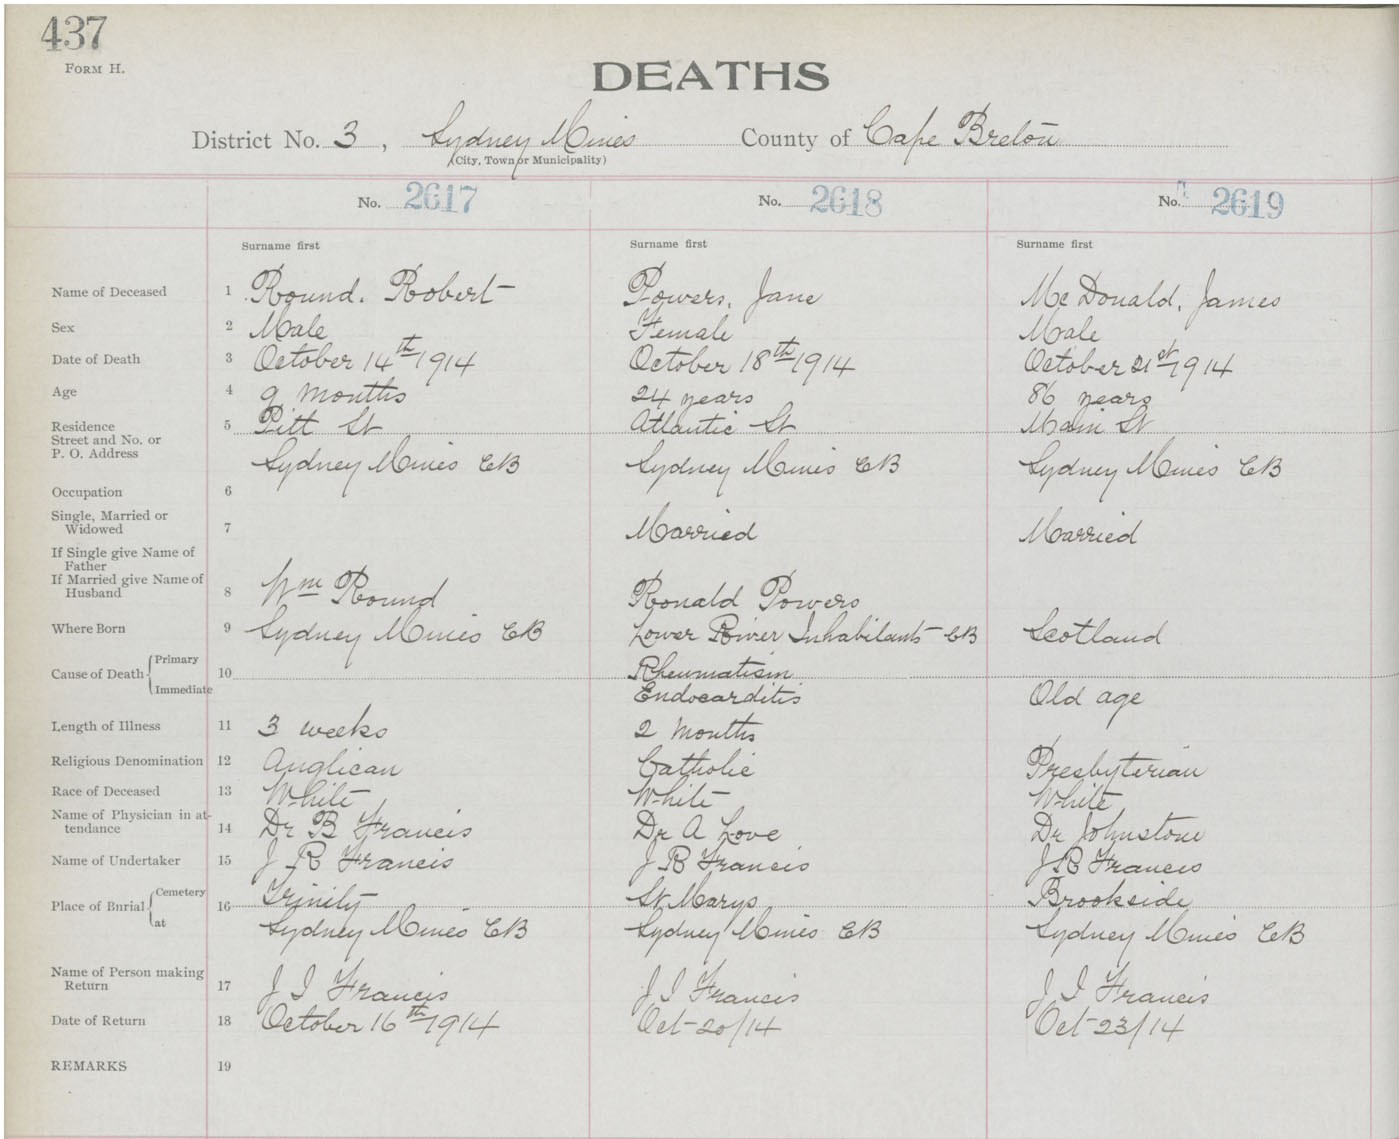 437
FORM H.
DEATHS
District No. 3, Sydney Mines County of Cape Breton
(City, Town or Municipality)
No. 2617 No. 2618 No. 2619
Surname first Surname first Surname first
Name of Deceased 1 Round. Robert Powers, Jane McDonald, James
Sex 2 Male Female Male
Date of Death 3 October 14th 1914 October 18th 1914 October 21st 1914
Age 4 9 months 24 years 86 years
Residence 5 Pitt St Atlantic St Main St
Street and No. or
P. O. Address Sydney Mines CB Sydney Mines CB Sydney Mines CB
Occupation 6
Single, Married or
Widowed 7 Married Married
If Single give Name of
Father
If Married give Name of
Husband 8 Wm Round Ronald Powers
Where Born 9 Sydney Mines CB Lower River Inhabitants CB Scotland
Cause of Death Primary 10 Rheumatism
Immediate Endocarditis Old age
Length of Illness 11 3 weeks 2 months
Religious Denomination 12 Anglican Catholic Presbyterian
Race of Deceased 13 White White White
Name of Physician in at-
tendance 14 Dr B Francis Dr A Love Dr Johnstone
Name of Undertaker 15 J R Francis J B Francis J B Francis
Place of Burial Cemetery 16 Trinity St Marys Brookside
at Sydney Mines CB Sydney Mines CB Sydney Mines CB
Name of Person making
Return 17 J I Francis J I Francis J I Francis
Date of Return 18 October 16th 1914 Oct 20/14 Oct 23/14
REMARKS 19